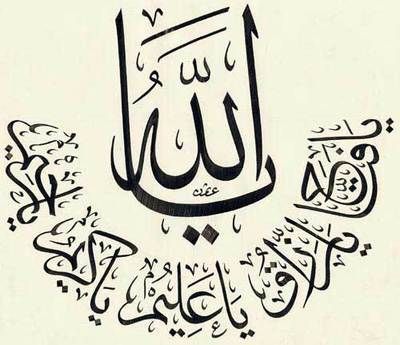 يا الله
يا فتاح
يا رزاق
يا عَلِيمُ
يا كريم